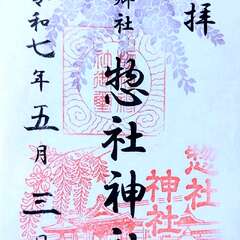 拝
郷社
惣社神社
令和七年五月三日
惣社
神社